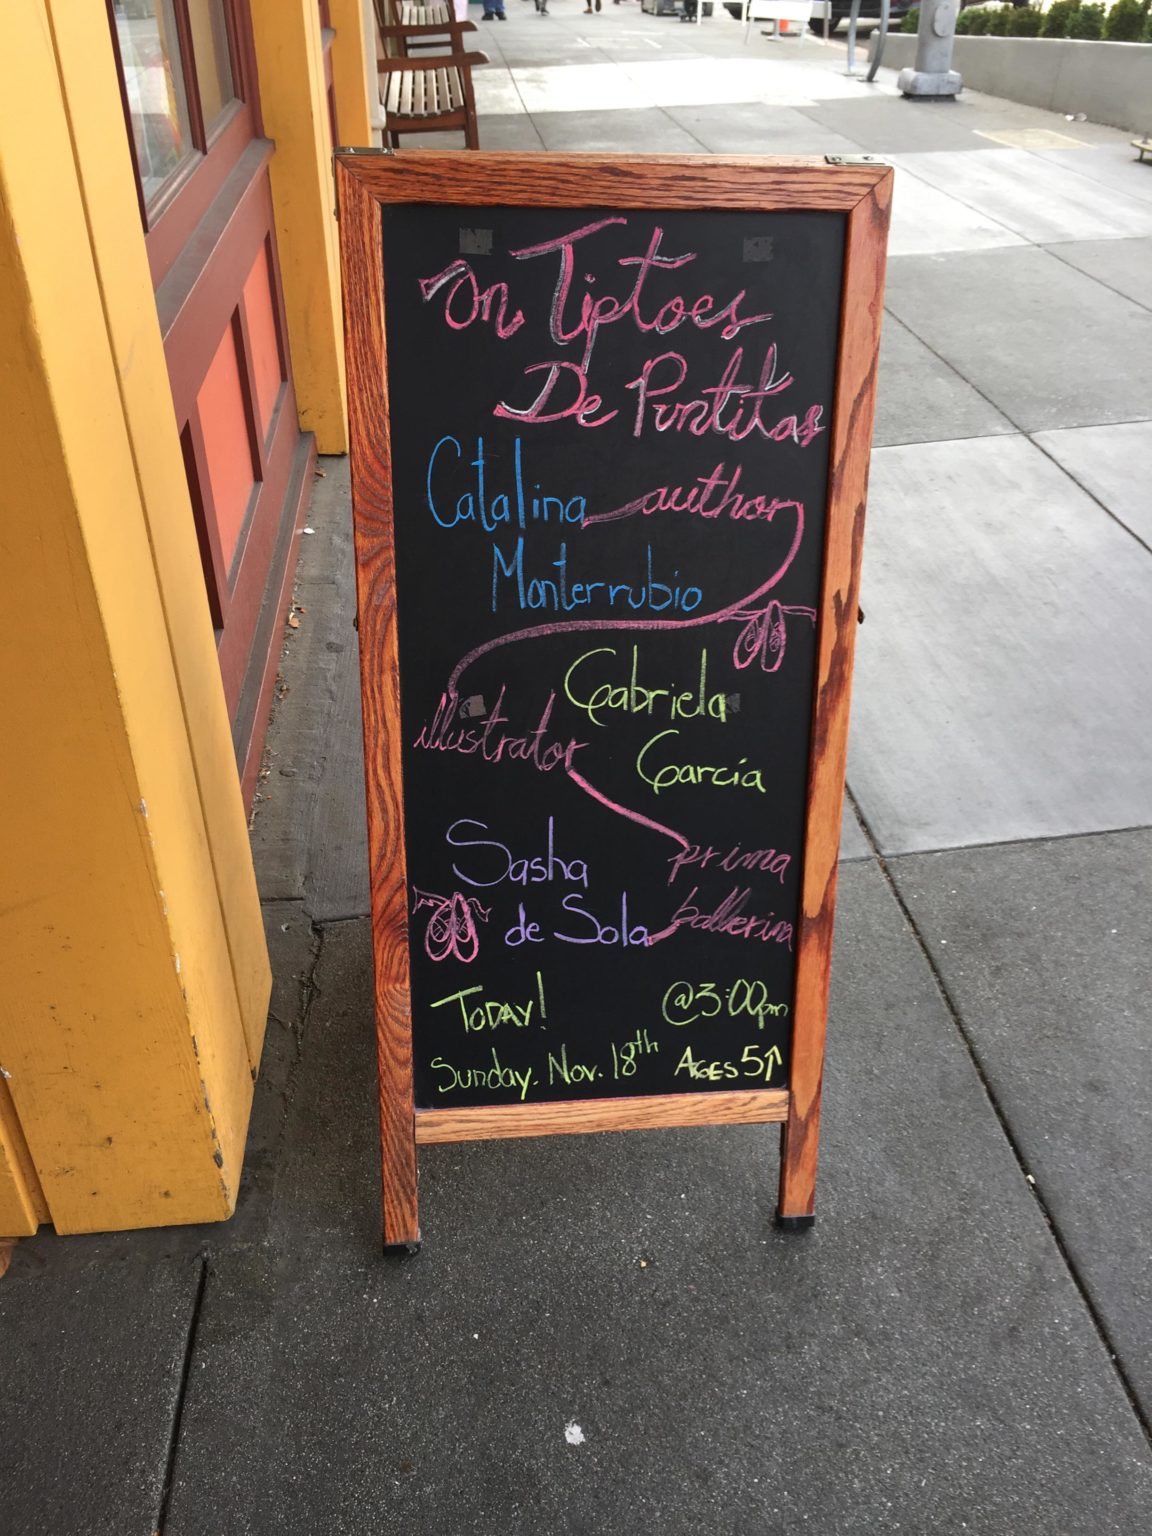 On Tiptoes
De Puntitas
Catalina author
Monterrubio
Gabriela
illustrator García
Sasha prima
de Sola ballerina
Today! @3:00pm
Sunday. Nov. 18th Ages 5↑